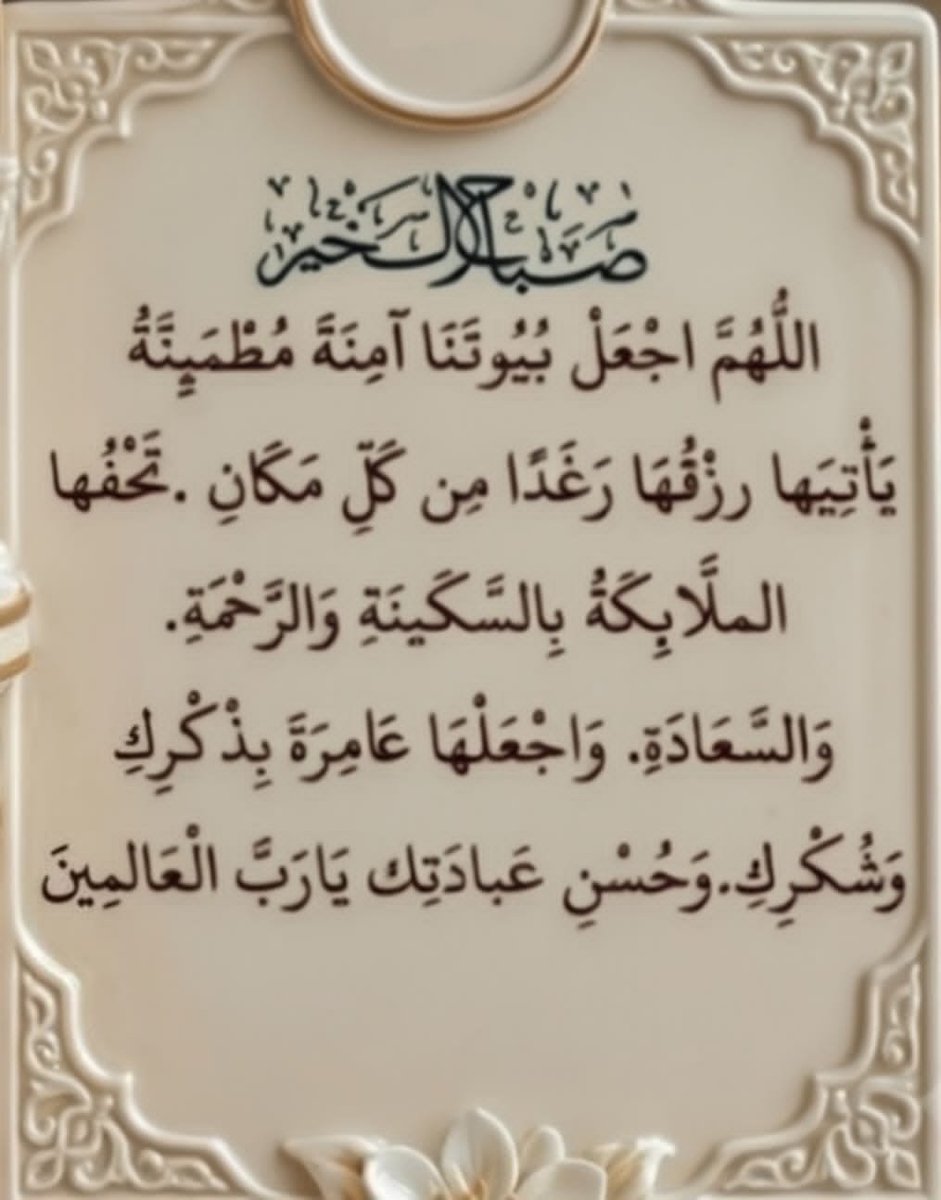 صَبَاحُ الْخَيْرِ
اللَّهُمَّ اجْعَلْ بُيُوتَنَا آمِنَةً مُطْمَيِنَّةً
يَأْتِيَها رِزْقُهَا رَغَدًا مِن كَلِّ مَكَانِ .تَحْفُها
الملَّابِكَةُ بِالسَّكَينَةِ وَالرَّحْمَةِ.
وَالسَّعَادَةِ. وَاجْعَلْهَا عَامِرَةَ بِذْكْرِكِ
وَشُكْرِكِ.وَحُسْنِ عَبادَتِك يَارَبَّ الْعَالمِينَ